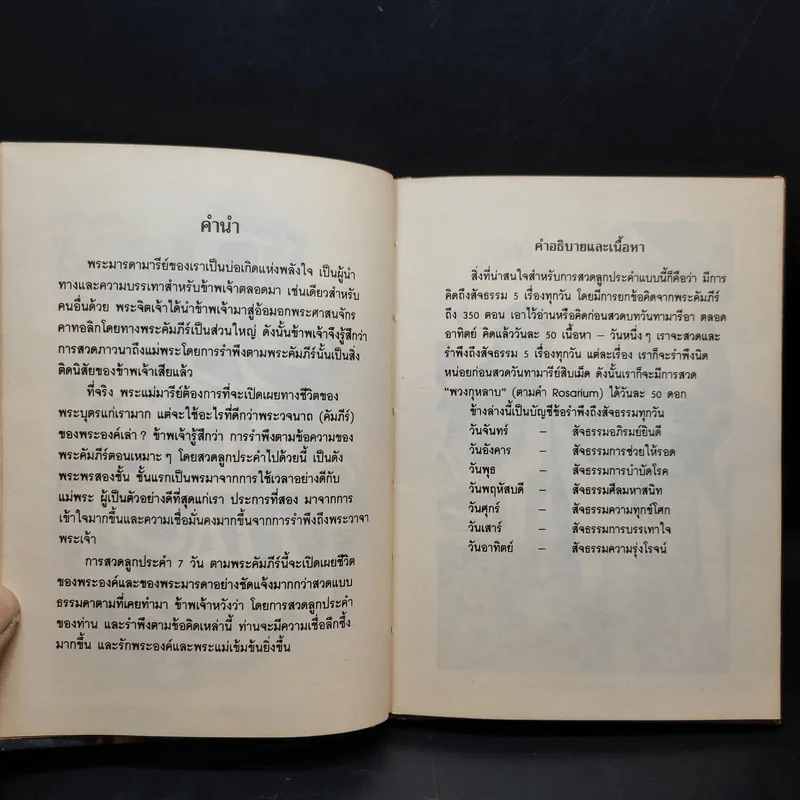 คำนำ
พระมารดามารีย์ของเราเป็นบ่อเกิดแห่งพลังใจ เป็นผู้นำ
ทางและความบรรเทาสำหรับข้าพเจ้าตลอดมา เช่นเดียวสำหรับ
คนอื่นด้วย พระจิตเจ้าได้นำข้าพเจ้ามาสู่อ้อมอกพระศาสนจักร
คาทอลิกโดยทางพระคัมภีร์เป็นส่วนใหญ่ ดังนั้นข้าพเจ้าจึงรู้สึกว่า
การสวดภาวนาถึงแม่พระโดยการรำพึงตามพระคัมภีร์นั้นเป็นสิ่ง
ติดนิสัยของข้าพเจ้าเสียแล้ว
ที่จริง พระแม่มารีย์ต้องการที่จะเปิดเผยทางชีวิตของ
พระบุตรแก่เรามาก แต่จะใช้อะไรที่ดีกว่าพระวจนาถ (คัมภีร์)
ของพระองค์เล่า ? ข้าพเจ้ารู้สึกว่า การรำพึงตามข้อความของ
พระคัมภีร์ตอนเหมาะ ๆ โดยสวดลูกประคำไปด้วยนี้ เป็นดัง
พระพรสองชั้น ชั้นแรกเป็นพรมาจากการใช้เวลาอย่างดีกับ
แม่พระ ผู้เป็นตัวอย่างดีที่สุดแก่เรา ประการที่สอง มาจากการ
เข้าใจมากขึ้นและความเชื่อมั่นคงมากขึ้นจากการรำพึงถึงพระวาจา
พระเจ้า
การสวดลูกประคำ 7 วัน ตามพระคัมภีร์นี้จะเปิดเผยชีวิต
ของพระองค์และของพระมารดาอย่างชัดแจ้งมากกว่าสวดแบบ
ธรรมดาตามที่เคยทำมา ข้าพเจ้าหวังว่า โดยการสวดลูกประคำ
ของท่าน และรำพึงตามข้อคิดเหล่านี้ ท่านจะมีความเชื่อลึกซึ้ง
มากขึ้น และรักพระองค์และพระแม่เข้มข้นยิ่งขึ้น
คำอธิบายและเนื้อหา
สิ่งที่น่าสนใจสำหรับการสวดลูกประคำแบบนี้ก็คือว่า มีการ
คิดถึงสัจธรรม 5 เรื่องทุกวัน โดยมีการยกข้อคิดจากพระคัมภีร์
ถึง 350 ตอน เอาไว้อ่านหรือคิดก่อนสวดบทวันทามารีอา ตลอด
อาทิตย์ คิดแล้ววันละ 50 เนื้อหา – วันหนึ่ง ๆ เราจะสวดและ
รำพึงถึงสัจธรรม 5 เรื่องทุกวัน แต่ละเรื่อง เราก็จะรำพึงนิด
หน่อยก่อนสวดวันทามารีย์สิบเม็ด ดังนั้นเราก็จะมีการสวด
“พวงกุหลาบ” (ตามคำ Rosarium) ได้วันละ 50 ดอก
ข้างล่างนี้เป็นบัญชีข้อรำพึงถึงสัจธรรมทุกวัน
วันจันทร์ – สัจธรรมอภิรมย์ยินดี
วันอังคาร – สัจธรรมการช่วยให้รอด
วันพุธ – สัจธรรมการบำบัดโรค
วันพฤหัสบดี – สัจธรรมศีลมหาสนิท
วันศุกร์ – สัจธรรมความทุกข์โศก
วันเสาร์ – สัจธรรมการบรรเทาใจ
วันอาทิตย์ – สัจธรรมความรุ่งโรจน์